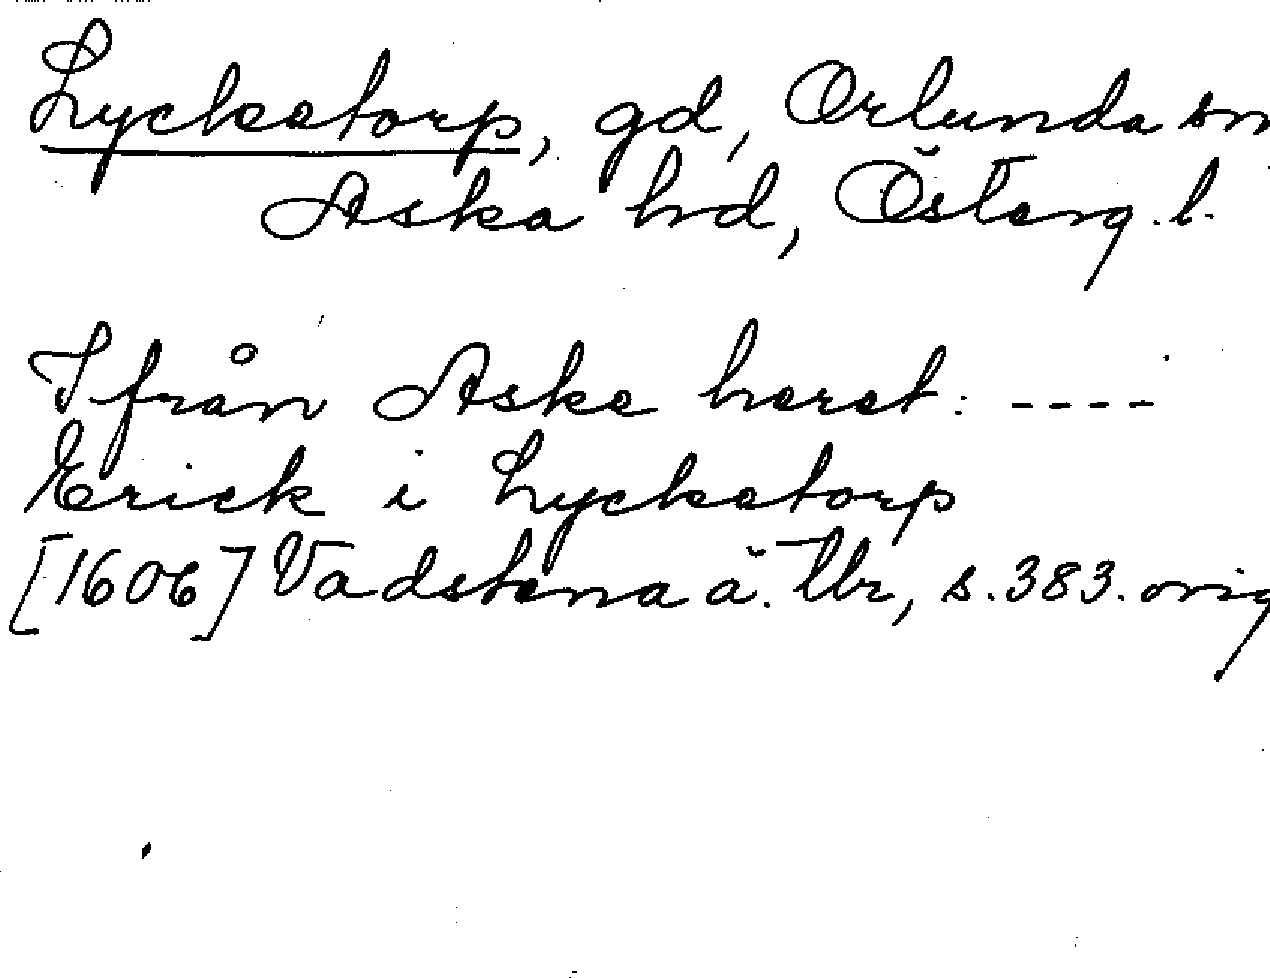 Lyckatorp, gd, Orlunda sn
Aska hd, Österg. l.
I från Aska harat: ----
Erick i Lyckatorp
[1606] Vadstena ä. tbr, s. 383. orig